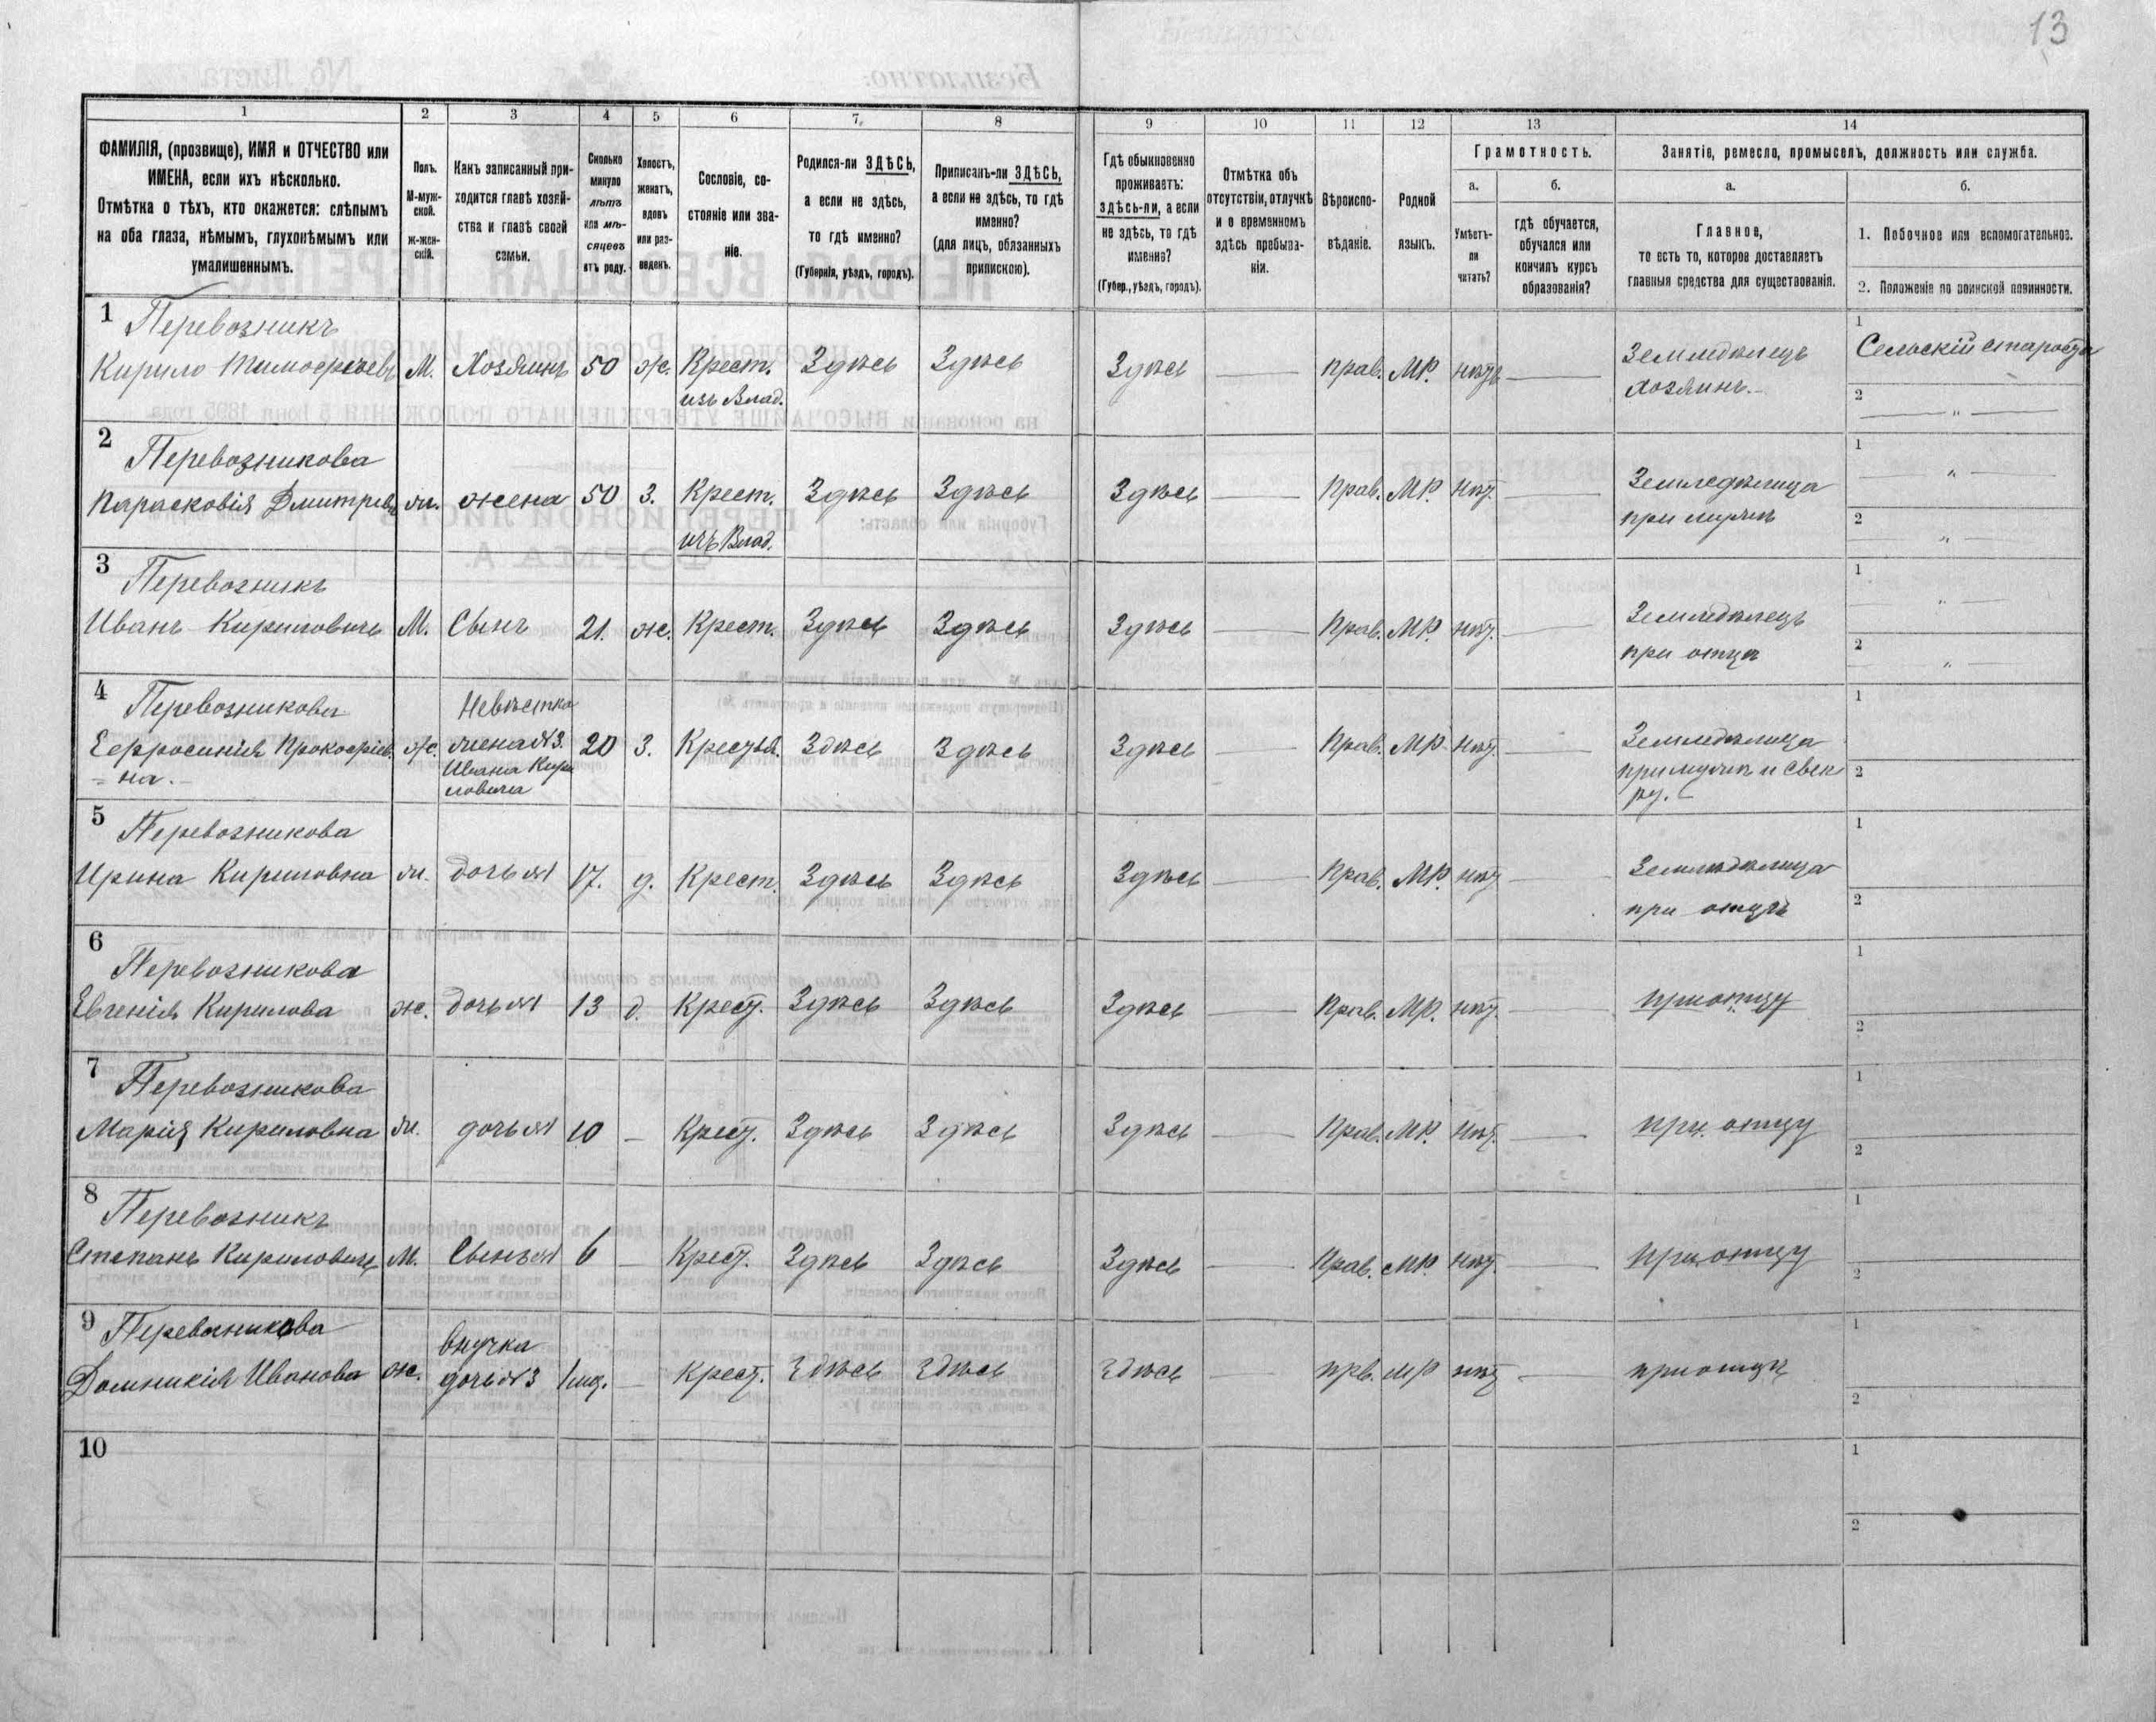 13
1
2
3
4
5
6
7
8
9
10
11
12
13
14
ФАМИЛІЯ, (прозвище), ИМЯ и ОТЧЕСТВО или
ИМЕНА, если ихъ нѣсколько.
Отмѣтка о тѣхъ, кто окажется: слѣпымъ
на оба глаза, нѣмымъ, глухонѣмымъ или
умалишеннымъ.
Полъ.
М-муж-
ской.
ж-жен-
скій.
Какъ записанный при-
ходится главѣ хозяй-
ства и главѣ своей
семьи.
Сколько
минуло
лѣтъ
или мѣ-
сяцевъ
отъ роду.
Холостъ,
женатъ,
вдовъ
или раз-
веденъ.
Сословіе, со-
стояніе или зва-
ніе.
Родился-ли ЗДѢСЬ,
а если не здѣсь,
то гдѣ именно?
(Губернія, уѣздъ, городъ).
Приписанъ-ли ЗДѢСЬ,
а если не здѣсь, то гдѣ
именно?
(для лицъ, обязанныхъ
припискою).
Гдѣ обыкновенно
проживаетъ:
здѣсь-ли, а если
не здѣсь, то гдѣ
именно?
(Губер., уѣздъ, городъ).
Отмѣтка объ
отсутствіи, отлучкѣ
и о временномъ
здѣсь пребыва-
ніи.
Вѣроиспо-
вѣданіе.
Родной
языкъ.
Грамотность.
а.
б.
Умѣетъ-
ли
читать?
гдѣ обучается,
обучался или
кончилъ курсъ
образованія?
Занятіе, ремесло, промыселъ, должность или служба.
а.
б.
Главное,
то есть то, которое доставляетъ
главныя средства для существованія.
1. Побочное или вспомогательное.
2. Положеніе по воинской повинности.
1 Перевозникъ
Кирило Тимофеевъ М. Хозяинъ 50 ж. Крест. Здѣсь Здѣсь Здѣсь прав. МР. нѣтъ Земледѣлецъ 1 Сельскій староста
изъ Влад. хозяинъ. 2 "
2 Перевозникова
Парасковія Дмитрев ж. жена 50 з. Крест. Здѣсь Здѣсь Здѣсь Прав. МР. нѣт. Земледѣлица 1 "
изъ Влад. при мужѣ 2 "
3 Перевозникъ
Иванъ Кириловичъ М. Сынъ 21. ж. Крест. Здѣсь Здѣсь Здѣсь Прав. МР. нѣт. Земледѣлецъ 1 "
при отцѣ 2 "
4 Перевозникова Невѣстка
Ефросинія Прокофіев ж. жена №3. 20 з. Крестья. Здѣсь Здѣсь Здѣсь Прав. МР. нѣт. Земледѣлица 1
-на.- Ивана Кири при мужѣ и свек 2
ловича ру.
5 Перевозникова
Ирина Кириловна ж. дочь №1 17. д. Крест. Здѣсь Здѣсь Здѣсь Прав. МР. нѣт Земледѣлица 1
при отцѣ 2
6 Перевозникова
Евгенія Кирилова ж. дочь №1 13 д. Крест. Здѣсь Здѣсь Здѣсь Прав. МР. нѣт. при отцу 1
2
7 Перевозникова
Марія Кириловна ж. дочь №1 10 – Крест. Здѣсь Здѣсь Здѣсь Прав. МР. нѣт. при отцу 1
2
8 Перевозникъ
Степанъ Кириловичъ М. Сынъ №1 6 – Крест. Здѣсь Здѣсь Здѣсь Прав. МР. нѣт. при отцу 1
2
9 Перевозникова внучка
Домникія Иванова ж. дочь №3 – Крест. Здѣсь Здѣсь Здѣсь прв. МР нѣт при отцѣ 1
2
10 1
2